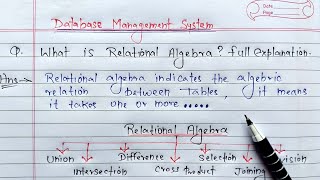 Date
Page
Database Management System
Q. What is Relational Algebra? full Explanation.
Ans:- Relational algebra indicates the algebric
relation between Tables, it means
it takes one or more.....
Relational Algebra
Union Difference Selection Division
Intersection Cross Product Joining